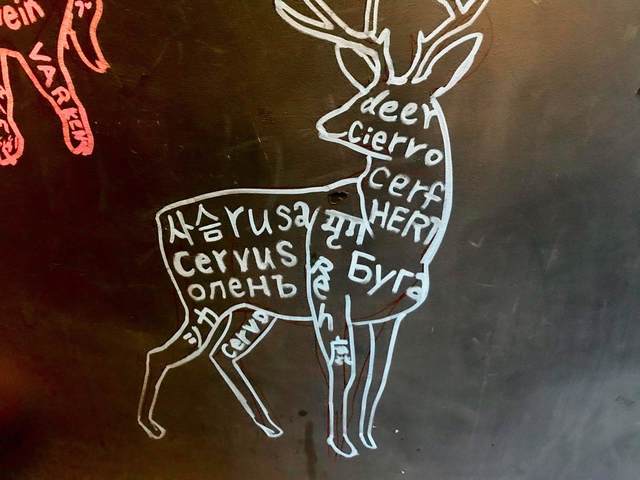 VARKEN
deer
ciervo
cerf
HERT
사슴 rusa मृग
cervus
Буга
оленъ
Reh
シカ
cervo